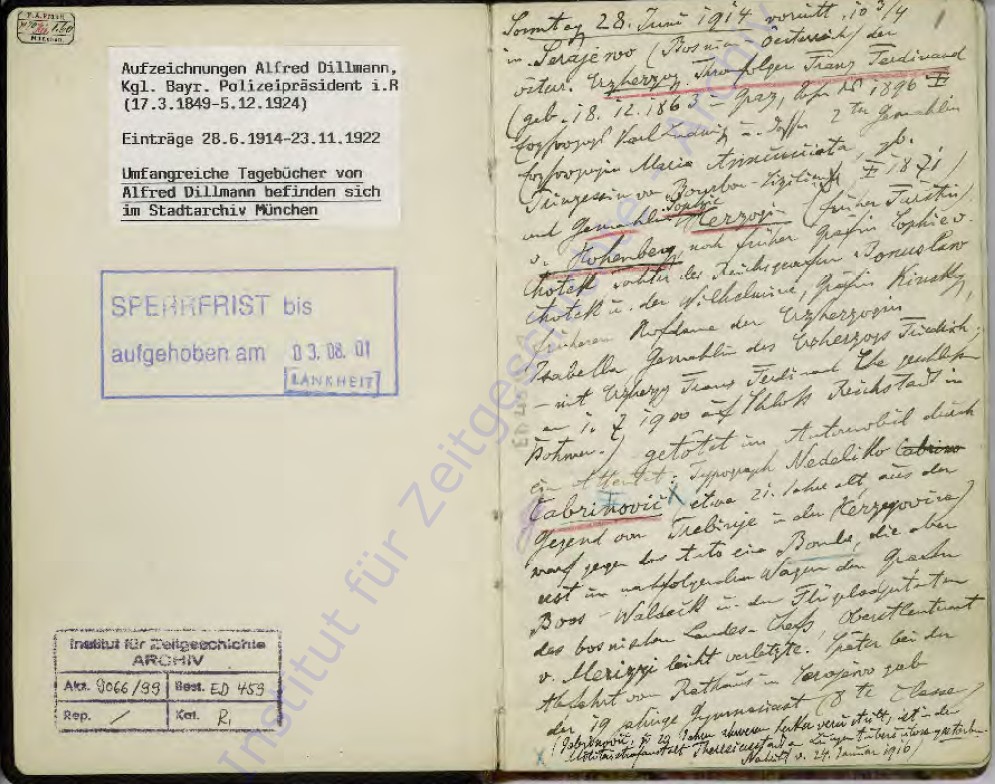 F.A.PRANTL
MÜNCHEN
Aufzeichnungen Alfred Dillmann,
Kgl. Bayr. Polizeipräsident i.R
(17.3.1849-5.12.1924)
Einträge 28.6.1914-23.11.1922
Umfangreiche Tagebücher von
Alfred Dillmann befinden sich
im Stadtarchiv München
SPERRFRIST bis
aufgehoben am 03.08.01
LANKHEIT
Institut für Zeitgeschichte
ARCHIV
Akz. 9066/99 Best. ED 459
Rep. / Kat. R1
1
Sonntag 28. Juni 1914 vormitt. 10 3/4
in Serajewo (Bosnien, Österreich) der
österr. Erzherzog Thronfolger Franz Ferdinand
(geb. 18.12.1863 in Graz, 1896
Erzherzogs Karl Ludwig u. dessen 2ter Gemahlin
Erzherzogin Maria Annunciata, gb.
Prinzessin von Bourbon-Sizilien 1871)
und Gemahlin Sophie Herzogin (früher Fürstin)
v. Hohenberg, noch früher Gräfin Sophie v.
Chotek Tochter des Reichsgrafen Bonuslaw
Chotek u. der Wilhelmine, Gräfin Kinsky,
früheren Hofdame der Erzherzogin
Isabella Gemahlin des Erzherzogs Friedrich,
– mit Erzherzog Franz Ferdinand Ehe geschlossen
am 1. 7 1900 auf Schloß Reichstadt in
Böhmen.) getötet im Automobil durch
ein Attentat: Typograph Nedeliko Cabrino
Cabrinović X (etwa 21 Jahre alt, aus der
Gegend von Trebinje in der Herzegowina)
warf gegen das Auto eine Bombe, die aber
erst im nachfolgenden Wagen den Grafen
Boos-Waldeck u. den Flügeladjutanten
des bosnischen Landes-Chefs, Oberstleutnant
v. Merizzi leicht verletzte. Später bei der
Abfahrt vom Rathaus in Serajewo gab
der 19 jährige Gymnasiast (8te Classe)
X (Cabrinović, zu 20 Jahren schweren Kerker verurteilt, ist in der
Militärstrafanstalt Theresienstadt an Lungentuberkulose gestorben.
v. 24. Januar 1916)
ED 459
Institut für Zeitgeschichte - Archiv